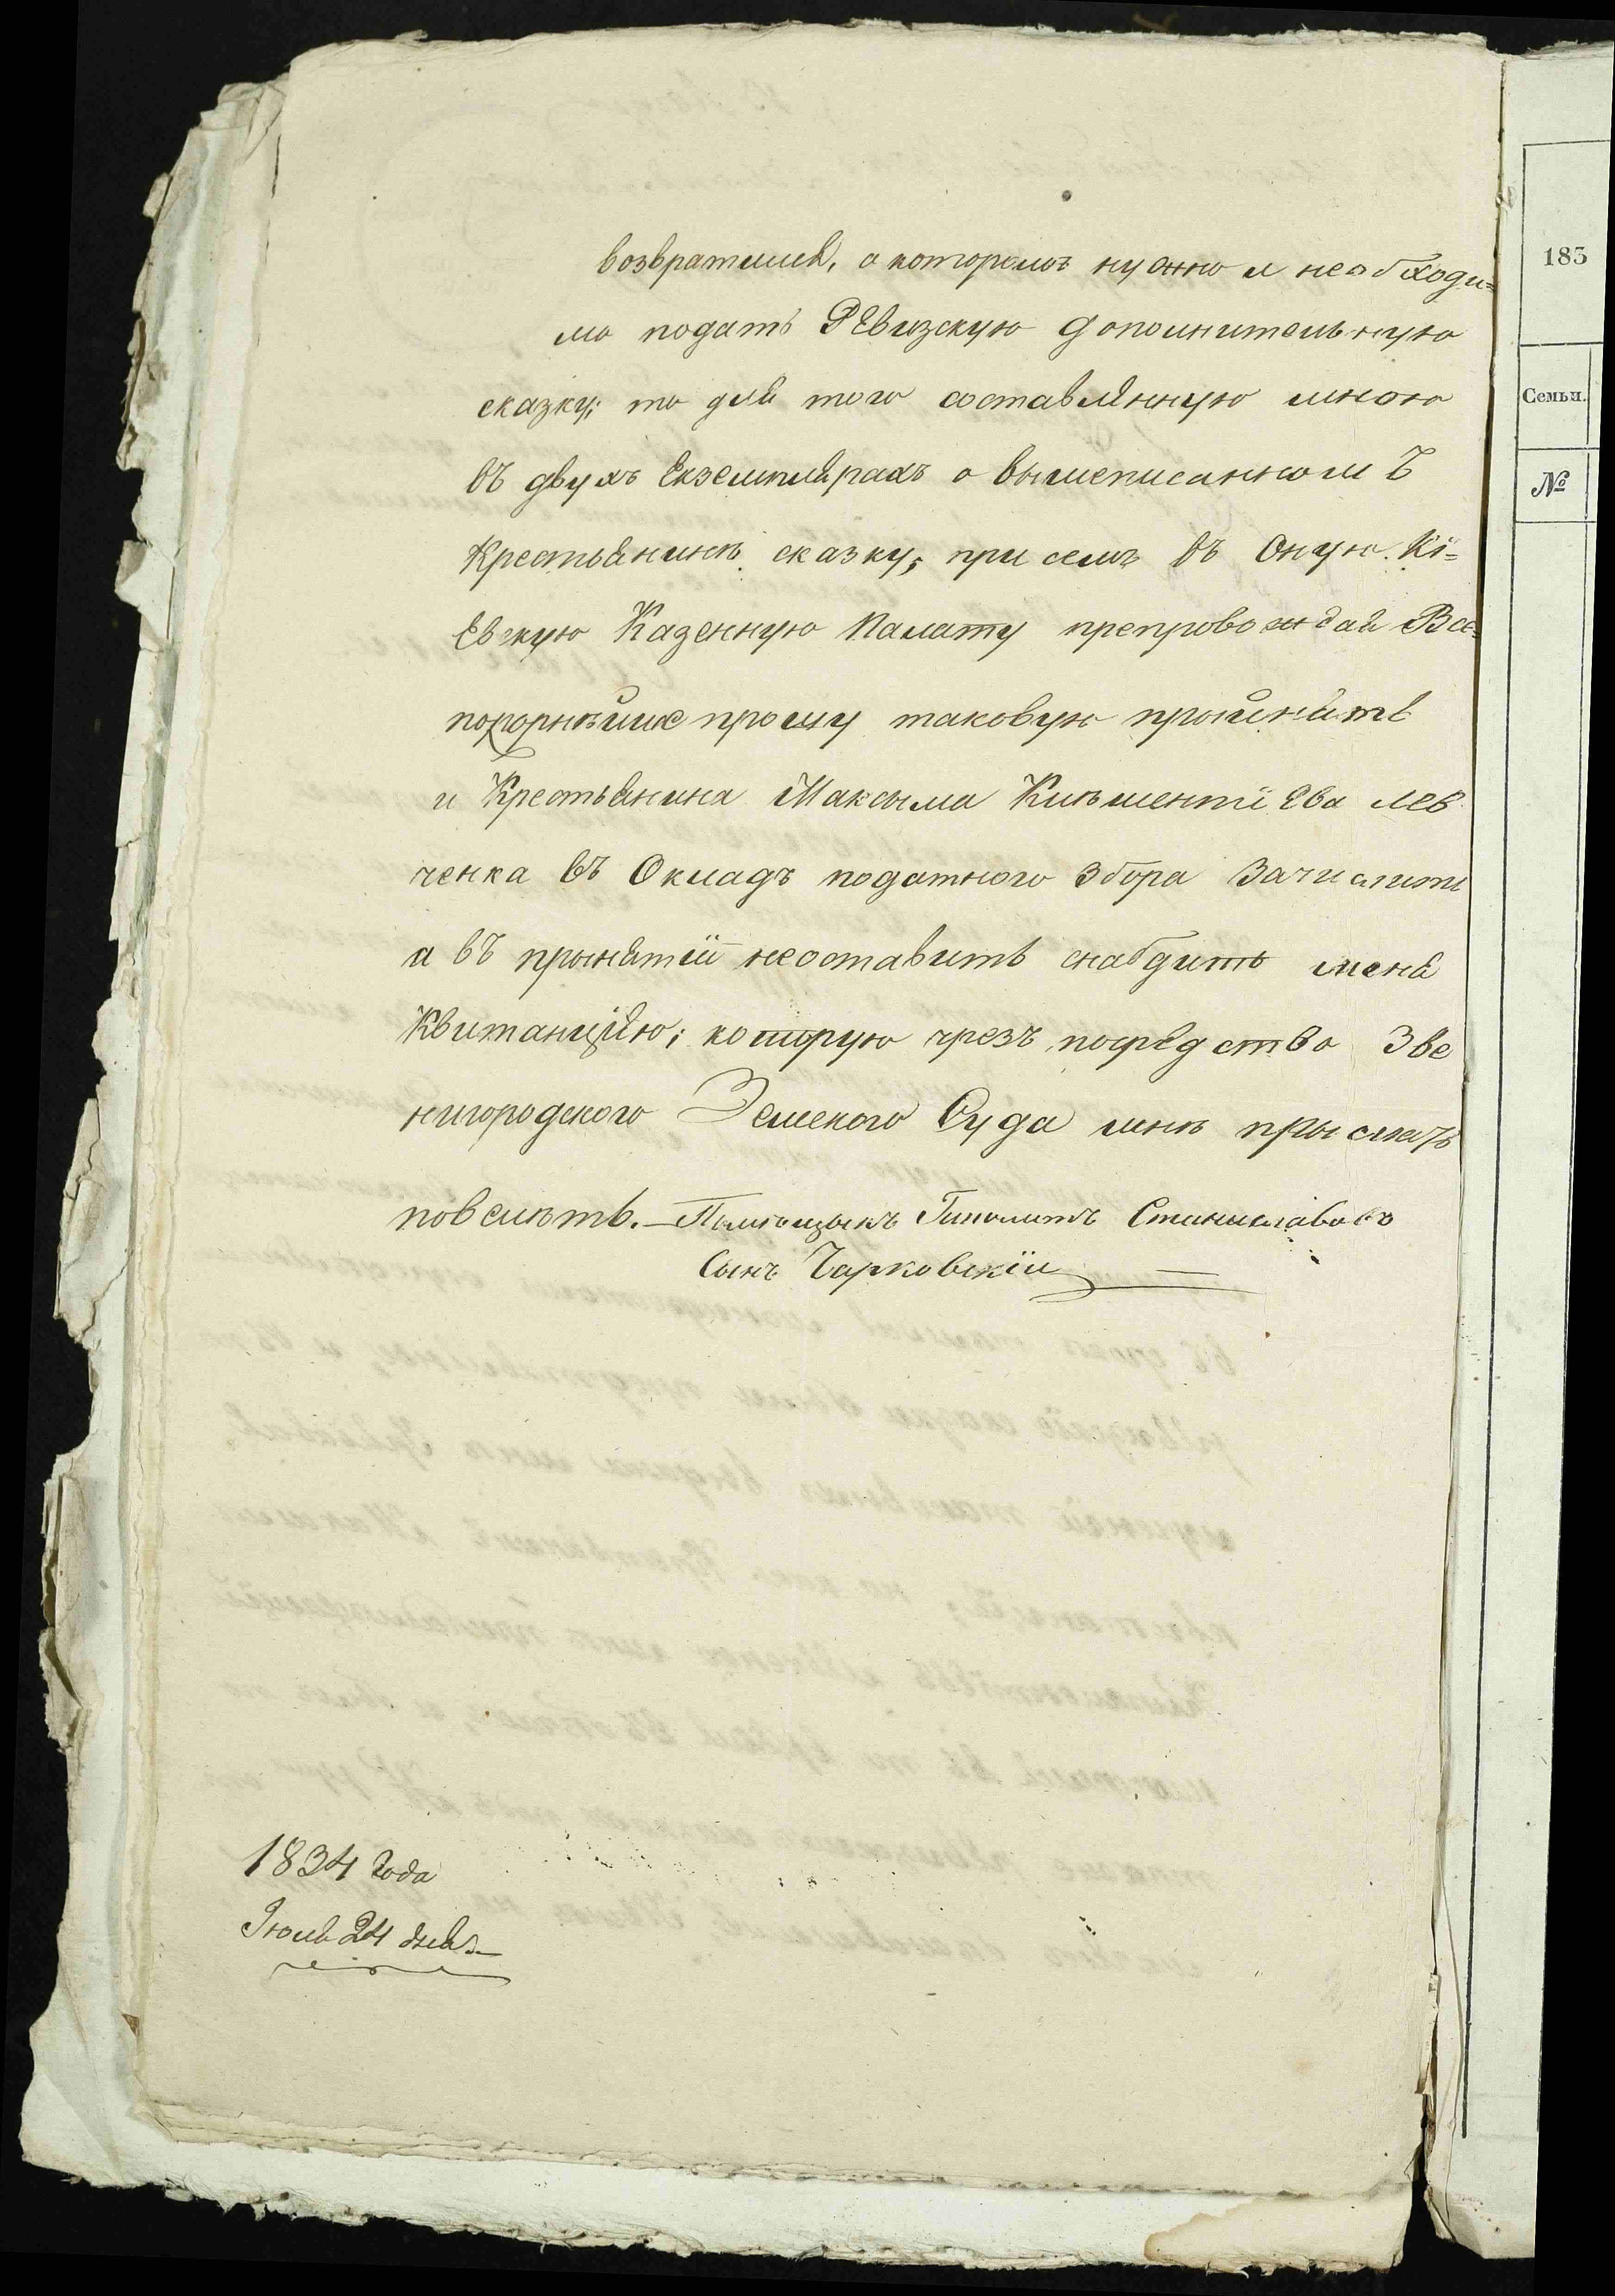 возвратился, о которомъ нужно и необходи=
мо подать РЕвизскую дополнительную
сказку; то для того составлѣнную мною
въ двухъ Екземплярахъ о вышеписанномЪ
Крестьянинѣ сказку; при семъ въ Оную Кі=
Евскую Казенную Палату препровождая Все=
покорнѣйше прошу таковую
и Крестьянина Максыма КлѣментіЕва Лев
ченка въ Окладъ податного Збора Зачислить
а въ прынятіи неоставить снабдить мена
Квитанціѣю; которую чрезъ посредство Зве
нигородского Земского Суда мнѣ прыслать
повелѣть. — Гиполитъ Станиславовъ
Сынъ Чарковскій
1834 Года
Іюля 24 дня
185
Семьи.
№